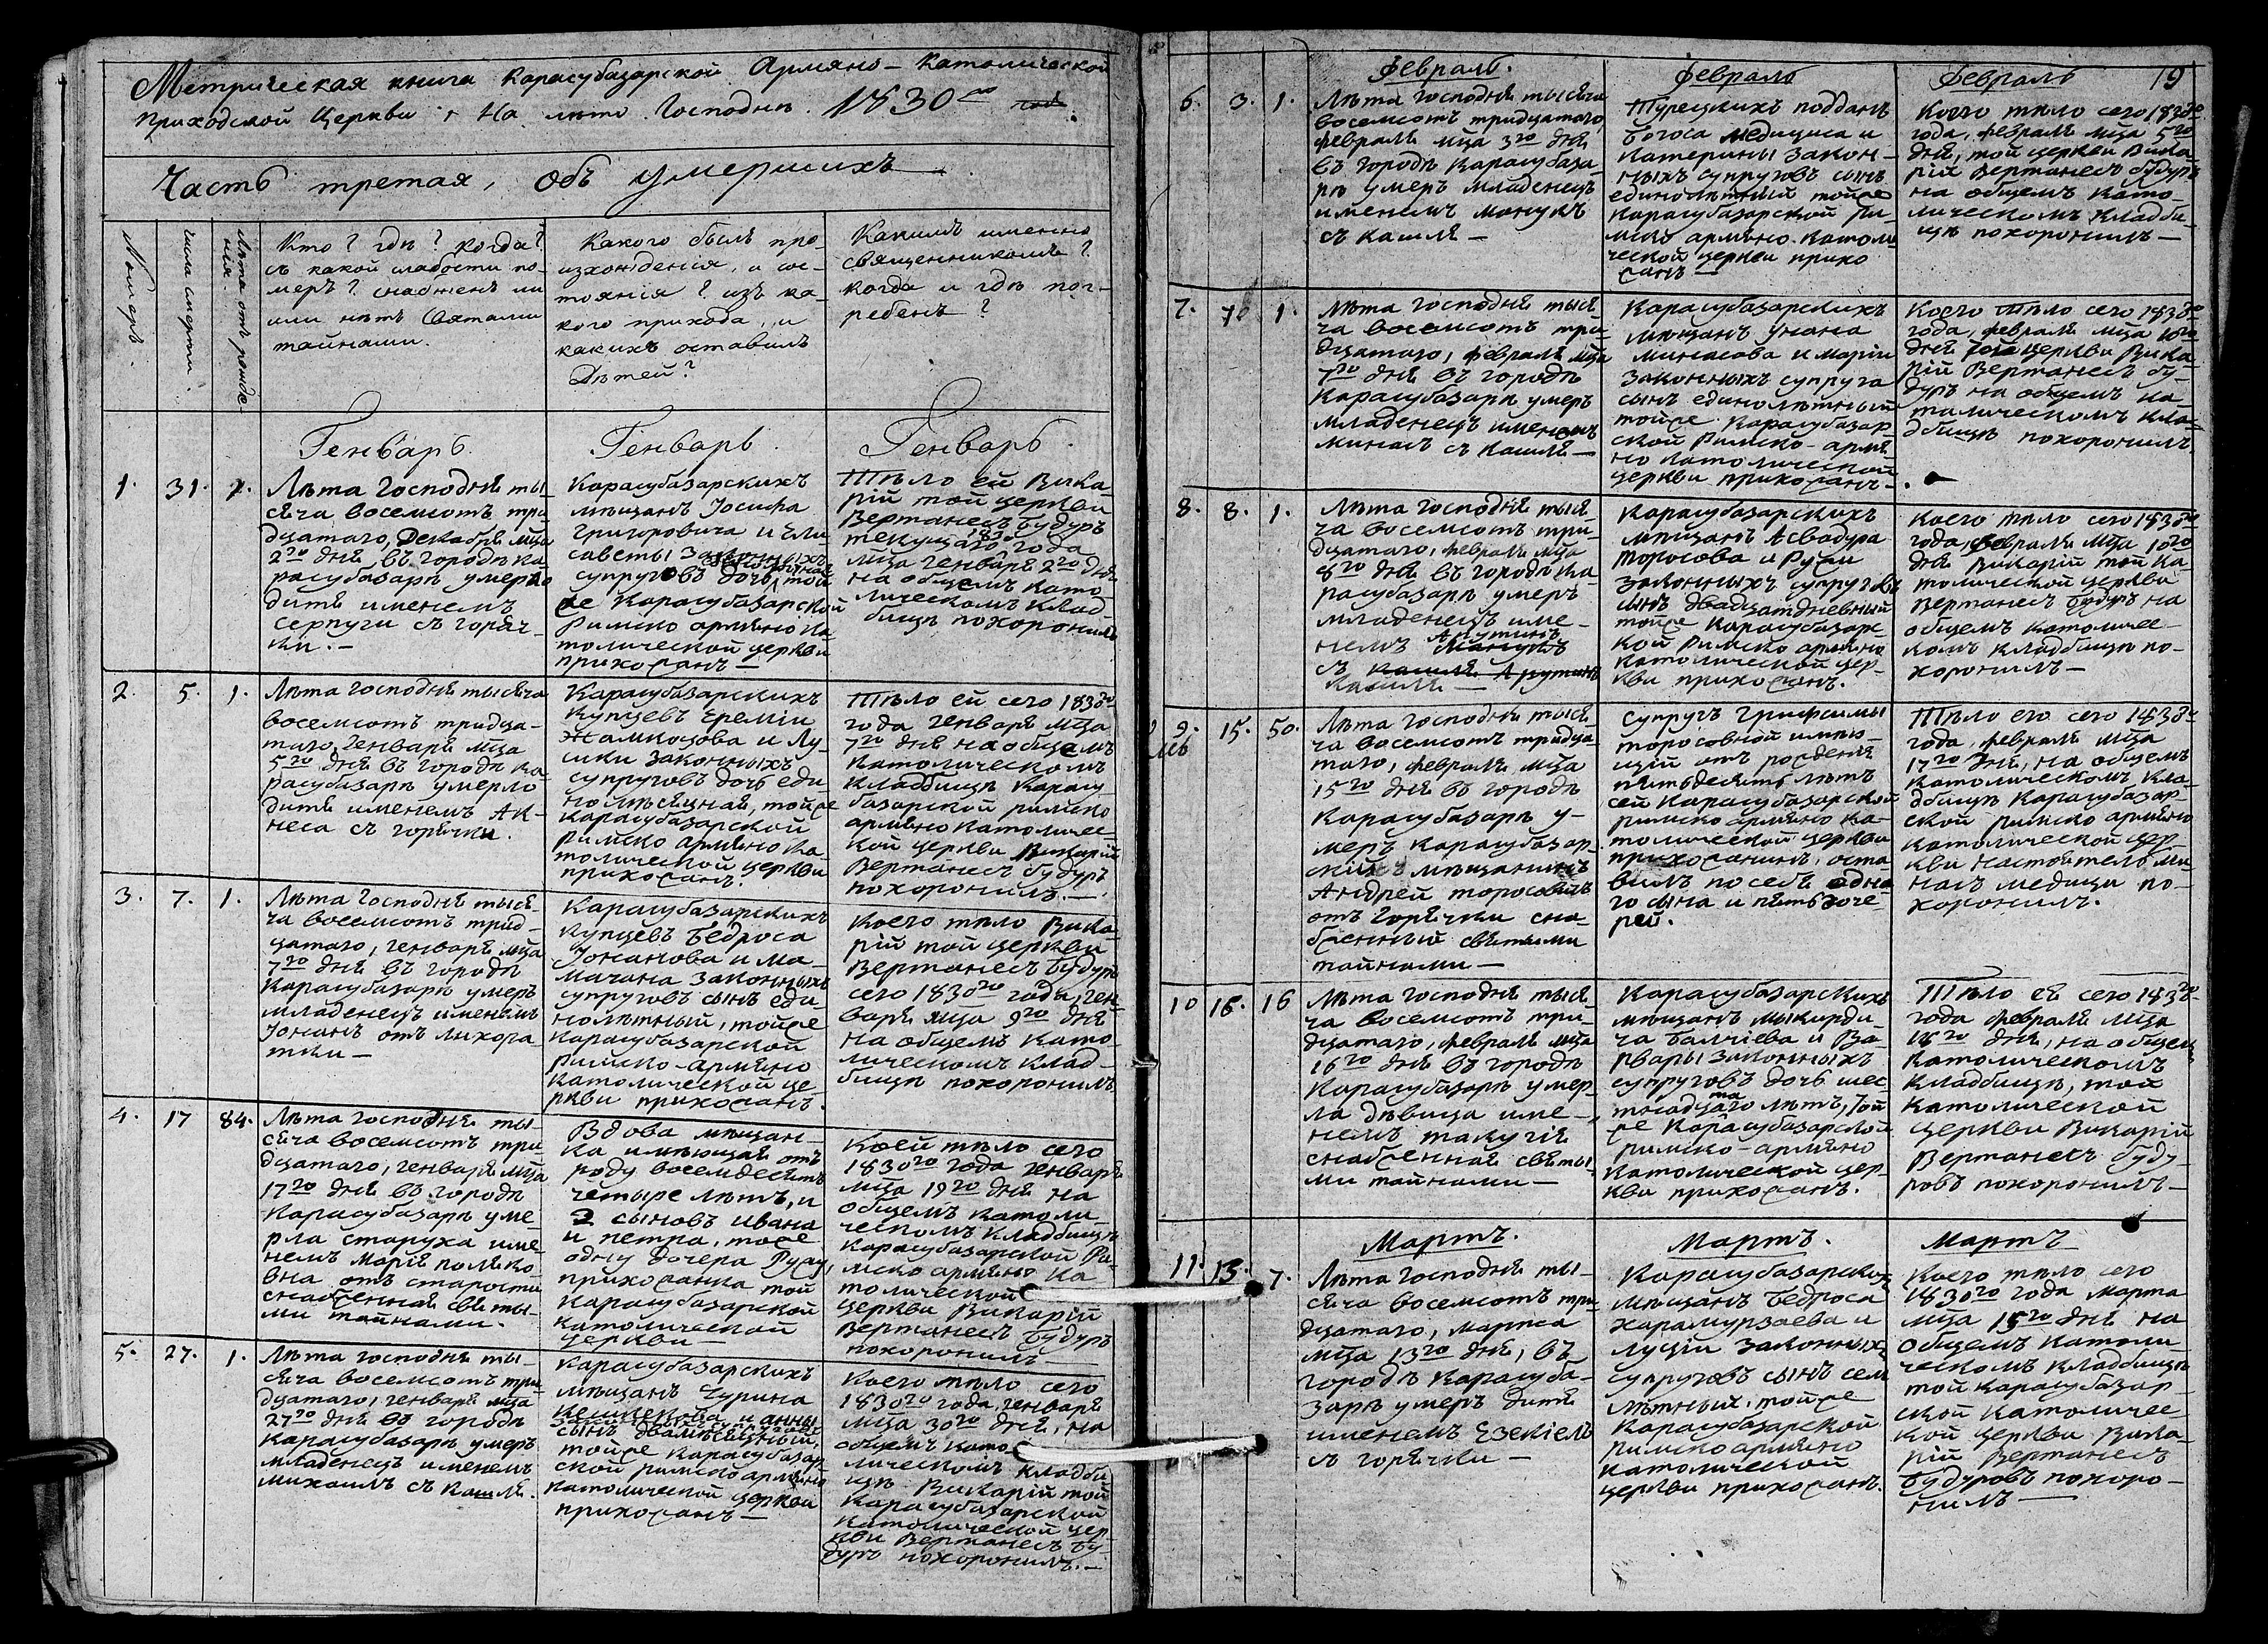 Метрическая книга Карасубазарской Армяно-Католической
приходской Церкви на лѣто Господнѣ 1830го год.
Часть третая, объ умершихъ
Нумеръ.
числа смерти.
Лѣта отъ рожде-
нія.
Кто? гдѣ? когда?
съ какой слабости по-
меръ? снабженъ ли
или нѣтъ Святыми
тайнами.
Какого былъ про-
изхожденія, и сос-
тоянія? изъ ка-
кого прихода, и
какихъ оставилъ
дѣтей?
Какимъ именно
священникомъ?
когда и гдѣ пог-
ребенъ?
Генварь.
Генварь.
Генварь.
1.
31.
1.
Лѣта Господня ты-
сяча восемсотъ три
дцатаго, Декабря мца
2го дня въ городѣ Ка-
расубазарѣ умерло
дитя именемъ
серпуги съ горяч-
ки.-
Карасубазарскихъ
мѣщанъ Іосифа
Григоровича и Ели-
саветы Законныхъ
супруговъ дочь, той
же Карасубазарской
Римско армяно ка-
толической церкви
прихожанъ-
Тѣло ей Вика-
рій той церкви
Вертанесъ Будуръ
текущаго года
мца генваря 2го дня
на общемъ като-
лическомъ клад
бищѣ похоронилъ
2.
5.
1.
Лѣта господня тысяча
восемсотъ тридца-
таго, Генваря мца
5го дня въ городѣ Ка-
расубазарѣ умерло
дитя именемъ Ак-
неса съ горячки.
Карасубазарскихъ
Купцевъ Ереміи
Жамкоцова и Лу-
сики Законныхъ
супруговъ дочь еди
номѣсячная, тойже
Карасубазарской
Римско армяно ка-
толической церкви
прихожанъ.
Тѣло ей сего 1830го
года генваря мца
7го дня на общемъ
католическомъ
кладбищѣ Карасу
базарской римско
армяно католичес-
кой церкви Викарій
Вертанесъ будуръ
похоронилъ.-
3.
7.
1.
Лѣта господня тыся-
ча восемсотъ трид-
цатаго, генваря мца
7го дня въ городѣ
Карасубазарѣ умеръ
младенецъ именемъ
Юнанъ отъ лихора-
тки-
Карасубазарскихъ
Купцевъ Бедроса
Юнанова и Ма-
мачана Законныхъ
супруговъ сынъ еди
нолѣтный, тойже
Карасубазарской
Римско-армяно
католической це
ркви прихожанъ.
Коего тѣло Вика-
рій той церкви
Вертанесъ Будуръ
сего 1830го года, ген
варя мца 9го дня
на общемъ като-
лическомъ клад-
бищѣ похоронилъ
4.
17
84.
Лѣта господня ты-
сяча восемсотъ три-
дцатаго, генваря мца
17го дня въ городѣ
Карасубазарѣ уме-
рла старуха име-
немъ Марія поляко
вна отъ старости
снабженная святы-
ми тайнами.
Вдова мѣщан-
ка имѣющая отъ
роду восемдесятъ
четыре лѣтъ, и
2 сыновъ ивана
и петра, тоже
одну дочера Рузу,
прихожанка той
Карасубазарской
католической
церкви-
Коей тѣло сего
1830го года генваря
мца 19го дня на
общемъ католи
ческомъ кладбищѣ
Карасубазарской Ри-
мско армяно ка
толической
церкви Викарій
Вертанесъ Будуръ
похоронилъ-
5.
27.
1.
Лѣта господня ты-
сяча восемсотъ три-
дцатаго, генваря мца
27го дня въ городѣ
Карасубазарѣ умеръ
младенецъ именемъ
михаилъ съ кашля.
Карасубазарскихъ
мѣщанъ Чурина
и анны
сынъ двамѣсячный,
тойже Карасубазар-
ской римско армяно
католической церкви
прихожанъ-
Коего тѣло сего
1830го года, генваря
мца 30го дня, на
общемъ като-
лическомъ кладби
щѣ Викарій той
Карасубазарской
католической цер-
кви Вертанесъ Бу-
дуръ похоронилъ.-
Февраль.
Февраль
Февраль
19
6.
3.
1.
Лѣта господня тысяча
восемсотъ тридцатаго,
февраля мца 3го дня
въ городѣ Карасубаза-
рѣ умеръ младенецъ
именемъ манукъ
съ кашля-
Турецкихъ подданъ
Богоса медициса и
Катерины Закон-
ныхъ супруговъ сынъ
единолѣтный тойже
Карасубазарской Ри-
мско армяно-католи
ческой церкви прихо
жанъ-
Коего тѣло сего 1830го
года, февраля мца 5го
дня, той церкви Вика-
рій Вертанесъ будуръ
на общемъ като-
лическомъ кладби
щѣ похоронилъ-
7.
7
1.
Лѣта господня тыся
ча восемсотъ три-
дцатаго, февраля мца
7го дня въ городѣ
Карасубазарѣ умеръ
младенецъ именемъ
минасъ съ кашля-
Карасубазарскихъ
мѣщанъ Унана
минасова и маріи
Законныхъ супруга
сынъ единолѣтный
тойже Карасубазар
ской Римско-армя-
но католической
церкви прихожанъ-
Коего тѣло сего 1830го
года, февраля мца 10го
дня той церкви Вика-
рій Вертанесъ бу-
дуръ на общемъ ка-
толическомъ кла-
дбищѣ похоронилъ.
8.
8.
1.
Лѣта господня тыся-
ча восемсотъ три-
дцатаго, февраля мца
8го дня въ городѣ Ка-
расубазарѣ умеръ
младенецъ име-
немъ Арутинъ
съ
кашля-
Карасубазарскихъ
мѣщанъ Асвадура
торосова и Рузи
законныхъ супруговъ
сынъ двадцатдневный
тойже Карасубазарс-
кой Римско армяно
католической цер-
кви прихожанъ.
Коего тѣло сего 1830го
года, февраля мца 10го
дня Викарій той ка-
толической церкви
Вертанесъ Будуръ на
общемъ католичес-
комъ кладбищѣ по-
хоронилъ-
9.
15.
50.
Лѣта господня тыся-
ча восемсотъ тридца-
таго, февраля мца
15го дня въ городѣ
Карасубазарѣ у-
меръ карасубазар-
скій мѣщанинъ
Андрей торосовичъ
отъ горячки сна-
бженный святыми
тайнами-
Супругъ Грипсимы
торосовной имѣю-
щій отъ рожденія
пятьдесятъ лѣтъ
сей Карасубазарской
римско армяно ка-
толической церкви
прихожанинъ, оста
вилъ по себѣ одна
го сына и пять доче-
рей.
Тѣло его сего 1830го
года, февраля мца
17го дня, на общемъ
католическомъ кла-
дбищѣ Карасубазар-
ской римско армяно
католической цер-
кви настоятель ми-
насъ медици по-
хоронилъ.
10
16.
16
Лѣта господня тыся
ча восемсотъ три-
дцатаго, февраля мца
16го дня въ городѣ
Карасубазарѣ умер-
ла дѣвица име-
немъ такугія
снабженная святы-
ми тайнами-
Карасубазарскихъ
мѣщанъ мыкирди-
ча Балчіева и Ва-
рвары законныхъ
супруговъ дочь шес-
тнадцатаго лѣтъ, той
же Карасубазарской
римско-армяно
католической цер-
кви прихожанъ.
Тѣло ея сего 1830го
года февраля мца
18го дня, на общемъ
католическомъ
кладбищѣ, той
католической
церкви Викарій
Вертанесъ буду-
ровъ похоронилъ-
Мартъ.
Мартъ.
Мартъ
11.
13.
7.
Лѣта господня ты-
сяча восемсотъ три
дцатаго, мартса
мца 13го дня, въ
городѣ Карасуба-
зарѣ умеръ дитя
именемъ Езекіелъ
съ горячки-
Карасубазарскихъ
мѣщанъ Бедроса
харамурзаева и
луціи законныхъ
супруговъ сынъ сем
лѣтный, тойже
Карасубазарской
римско армяно
католической
церкви прихожанъ.
Коего тѣло сего
1830го года марта
мца 15го дня на
общемъ католи-
ческомъ кладбищѣ
той Карасубазар-
ской католичес-
кой церкви Вика-
рій Вертанесъ
Будуровъ похоро-
нилъ-